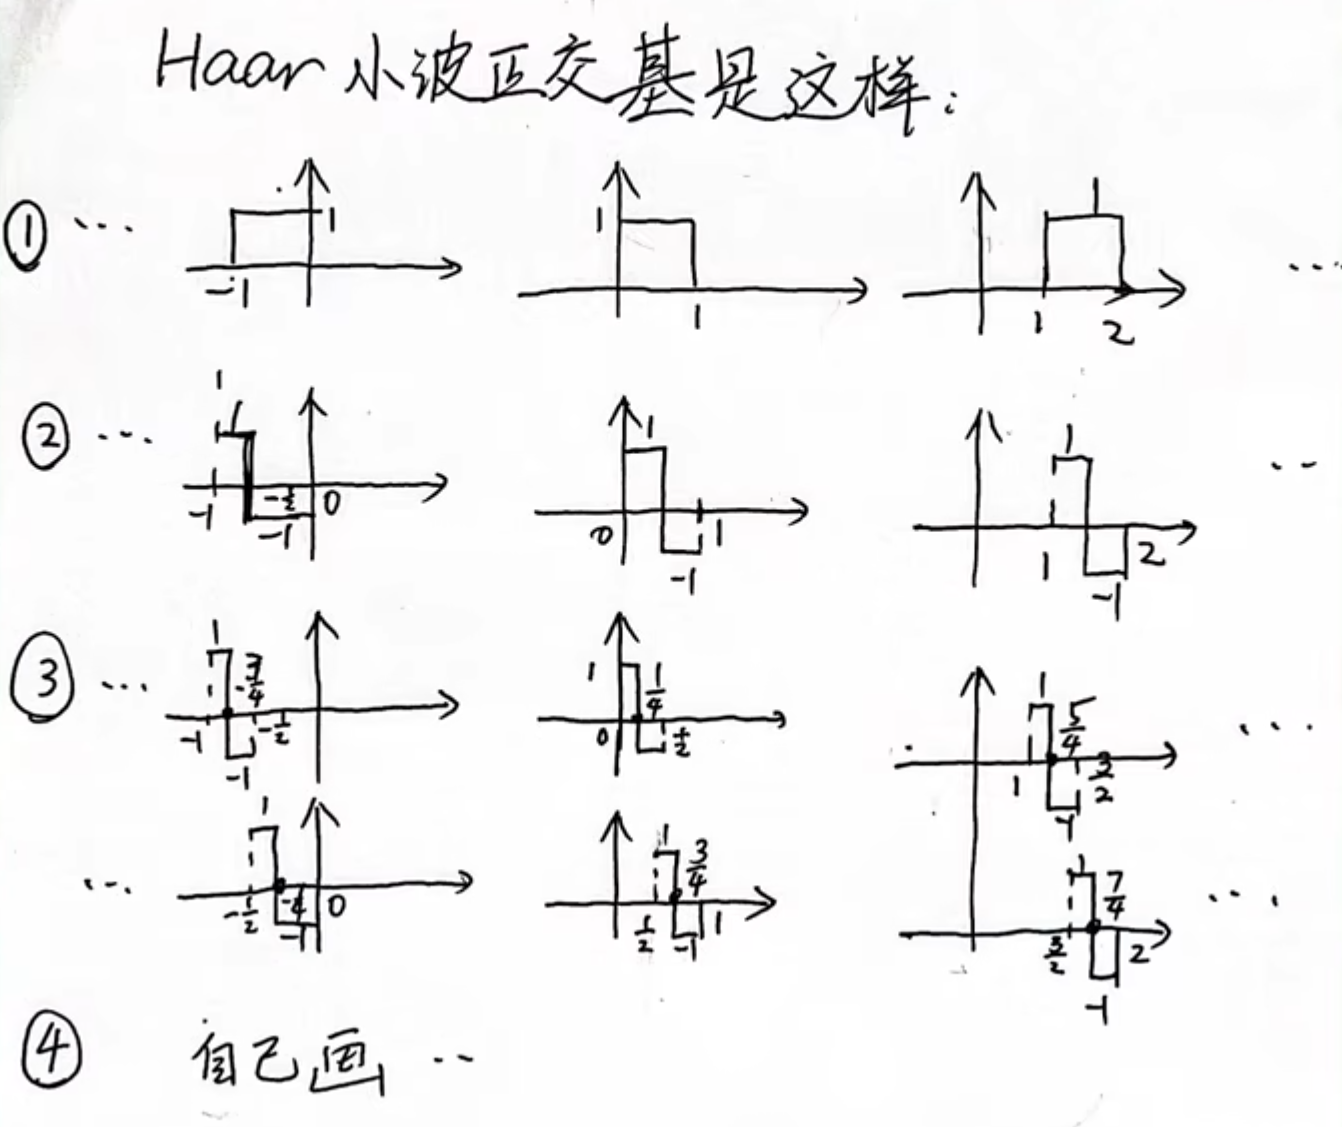 Haar 小波正交基是这样：
① ... 1 -1 1 1 1 1 2 ...
② ... 1 1 -1 -1/2 0 -1 1 0 1 -1 1 1 2 -1 ..
③ ... 1 -3/4 -1 -1/2 -1 1 1/4 0 1/2 1 5/4 1 3/2 -1 ...
... 1 -1/2 -1/4 0 -1 1 3/4 1/2 -1 1 1 7/4 3/2 2 -1 ...
④ 自己画 ..